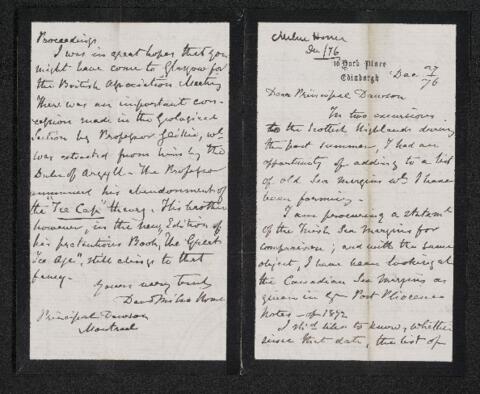 Milne Home
Dec /76
10 York Place
Edinburgh Dec 27/76
Dear Principal Dawson
In two excursions
to the Scottish Highlands during
the past summer, I had an
opportunity of adding to a list
of old Sea margins wh I have
been forming.
I am procuring a statemt
of the Irish Sea Margins for
comparison; and with the same
object, I have been looking at
the Canadian Sea Margins as
given in yr Post Pliocene
Notes - of 1872
I shd like to know, whether
since that date, the list of
Proceedings
I was in great hopes that you
might have come to Glasgow for
the British Association Meeting
There was an important con-
cession made in the Geological
Section by Professor Geikie, wh
was extracted from him by the
Duke of Argyll - The Professor
announced his abandonment of
the "Ice Cap" theory. His brother
however, in the new Edition of
his pretentious Book, the Great
Ice Age", still clings to that
fancy.
Yours very truly
David Milne Home
Principal Dawson
Montreal